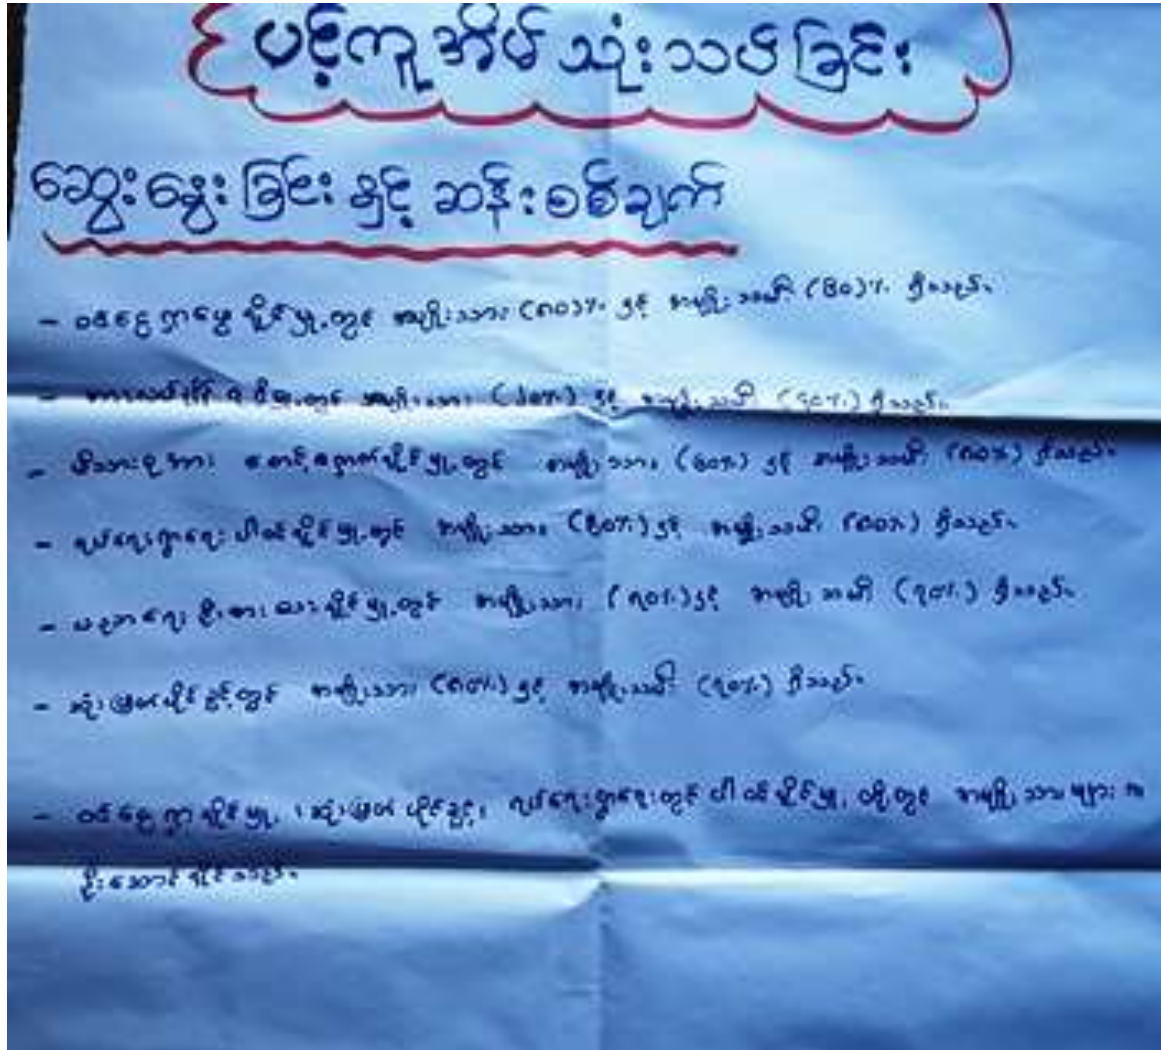 ပင့်ကူအိမ်သုံးသပ်ခြင်း
ဆွေးနွေးခြင်းနှင့် ဆန်းစစ်ချက်
- ဝင်ငွေရှာဖွေနိုင်မှုတွင် အမျိုးသား (၈၀)% နှင့် အမျိုးသမီး (၆၀)% ရှိသည်။
- တွင် အမျိုးသား နှင့် အမျိုးသမီး ရှိသည်။
- မိသားစုအား စောင့်ရှောက်နိုင်မှုတွင် အမျိုးသား (၆၀%) နှင့် အမျိုးသမီး (၈၀%) ရှိသည်။
- ရပ်ရေးရွာရေးပါဝင်နိုင်မှုတွင် အမျိုးသား နှင့် အမျိုးသမီး (၈၀%) ရှိသည်။
- ပညာရေး ဦးစားပေးနိုင်မှုတွင် အမျိုးသား (၇၀%) နှင့် အမျိုးသမီး (၇၀%) ရှိသည်။
- ဆုံးဖြတ်ပိုင်ခွင့်တွင် အမျိုးသား (၈၀%) နှင့် အမျိုးသမီး (၇၀%) ရှိသည်။
- ဝင်ငွေရှာနိုင်မှု၊ ဆုံးဖြတ်ပိုင်ခွင့်၊ ရပ်ရေးရွာရေးတွင်ပါဝင်နိုင်မှု တို့တွင် အမျိုးသားများက
ဦးဆောင်နိုင်သည်။